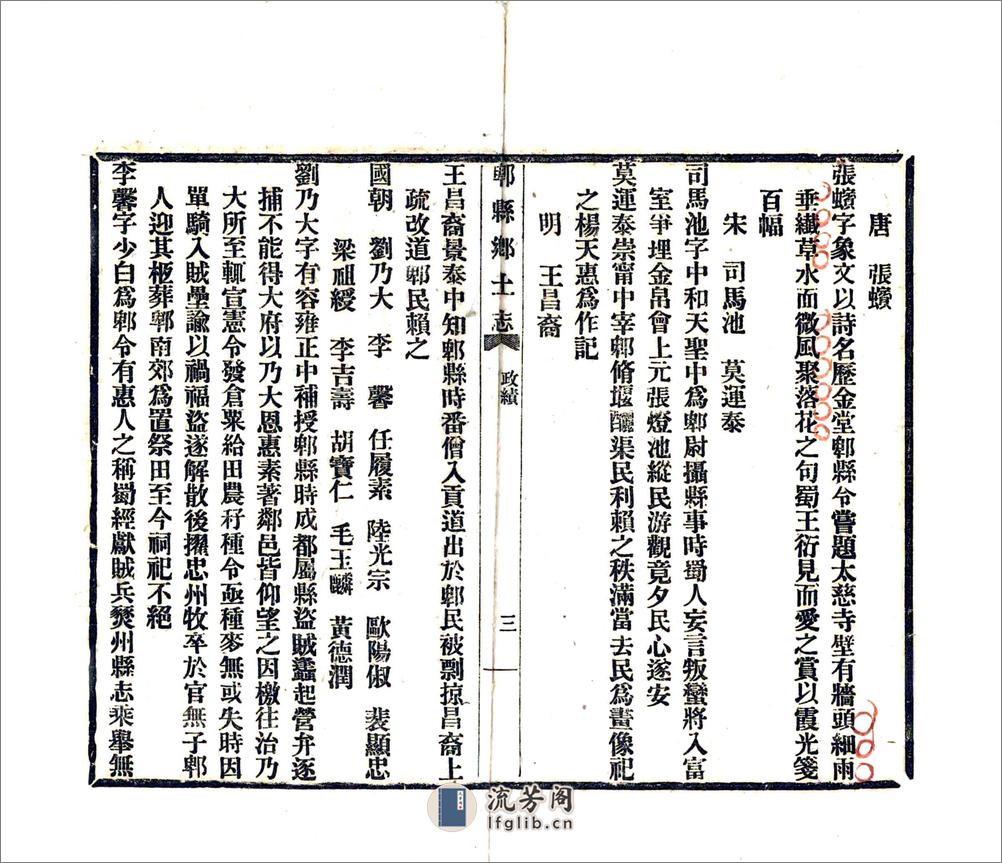 唐　張蠙
張蠙字象文以詩名歷金堂郫縣令嘗題太慈寺壁有牆頭細雨
垂纖草水面微風聚落花之句蜀王衍見而愛之賞以霞光箋
百幅
宋　司馬池　莫運泰
司馬池字中和天聖中爲郫尉攝縣事時蜀人妄言叛蠻將入富
室爭埋金帛會上元張燈池縱民游觀竟夕民心遂安
莫運泰崇甯中宰郫脩堰釃渠民利賴之秩滿當去民爲畫像祀
之楊天惠爲作記
明　王昌裔
郫縣鄉土志　政績　三
王昌裔景泰中知郫縣時番僧入貢道出於郫民被剽掠昌裔上
疏改道郫民賴之
國朝　劉乃大　李馨　任履素　陸光宗　歐陽俶　裴顯忠
梁祖綬　李吉壽　胡寶仁　毛玉麟　黃德潤
劉乃大字有容雍正中補授郫縣時成都屬縣盜賊蠭起營弁逐
捕不能得大府以乃大恩惠素著鄰邑皆仰望之因檄往治乃
大所至輒宣憲令發倉粟給田農籽種令亟種麥無或失時因
單騎入賊壘諭以禍福盜遂解散後擢忠州牧卒於官無子郫
人迎其柩葬郫南郊爲置祭田至今祠祀不絕
李馨字少白爲郫令有惠人之稱蜀經獻賊兵燹州縣志乘舉無
流芳阁
lfglib.cn